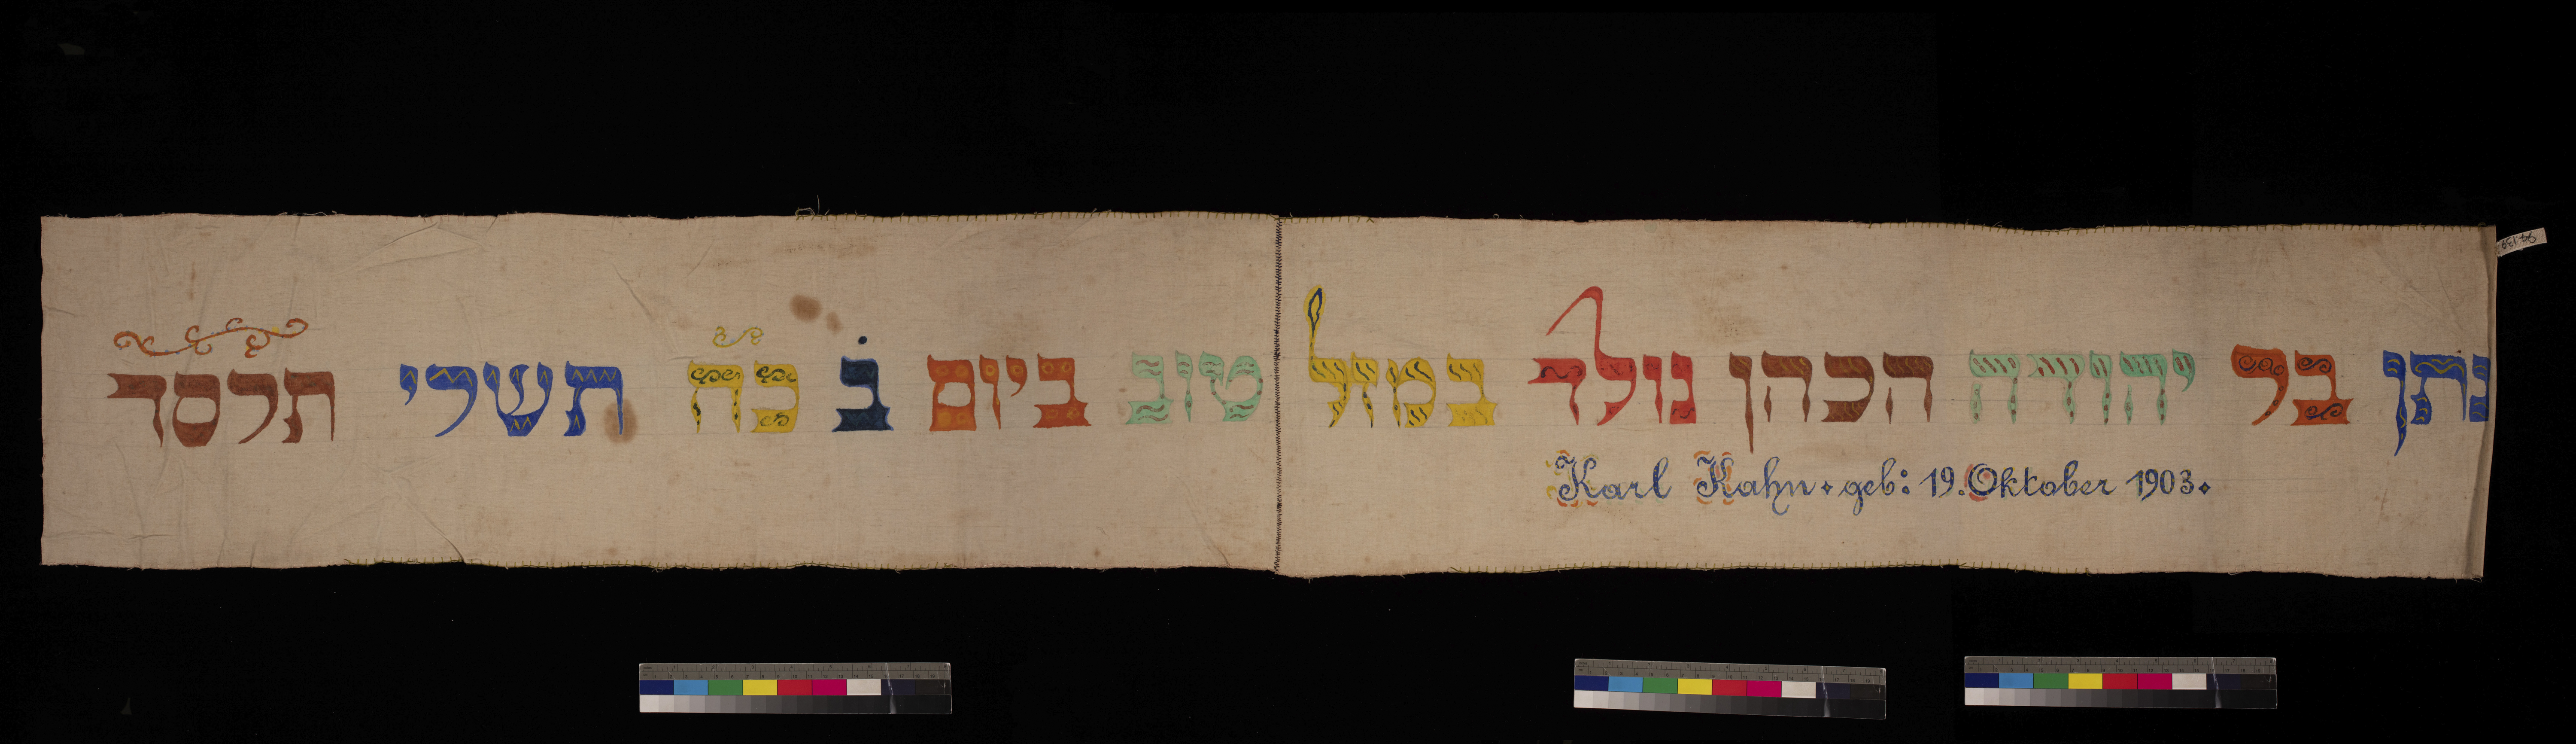 נתן בר יהודה הכהן נולד במזל טוב ביום ב̇ כח תשרי תרסד
Karl Kahn ⋆ geb: 19. Oktober 1903 ⋆